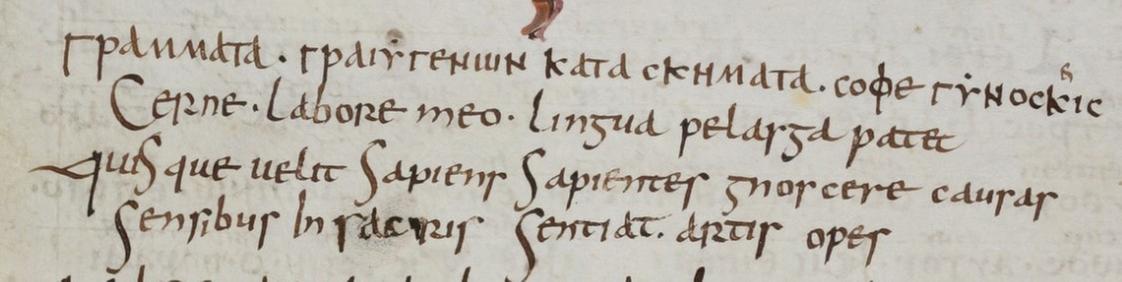 γραμματα · γραιγγενων κατα cκηματα · coφε γγνοcκιc
Cerne · labore meo · lingua pelarga patet
quisque uelit sapiens sapientes gnoscere causas
sensibus in sacris sentiat · artis opes